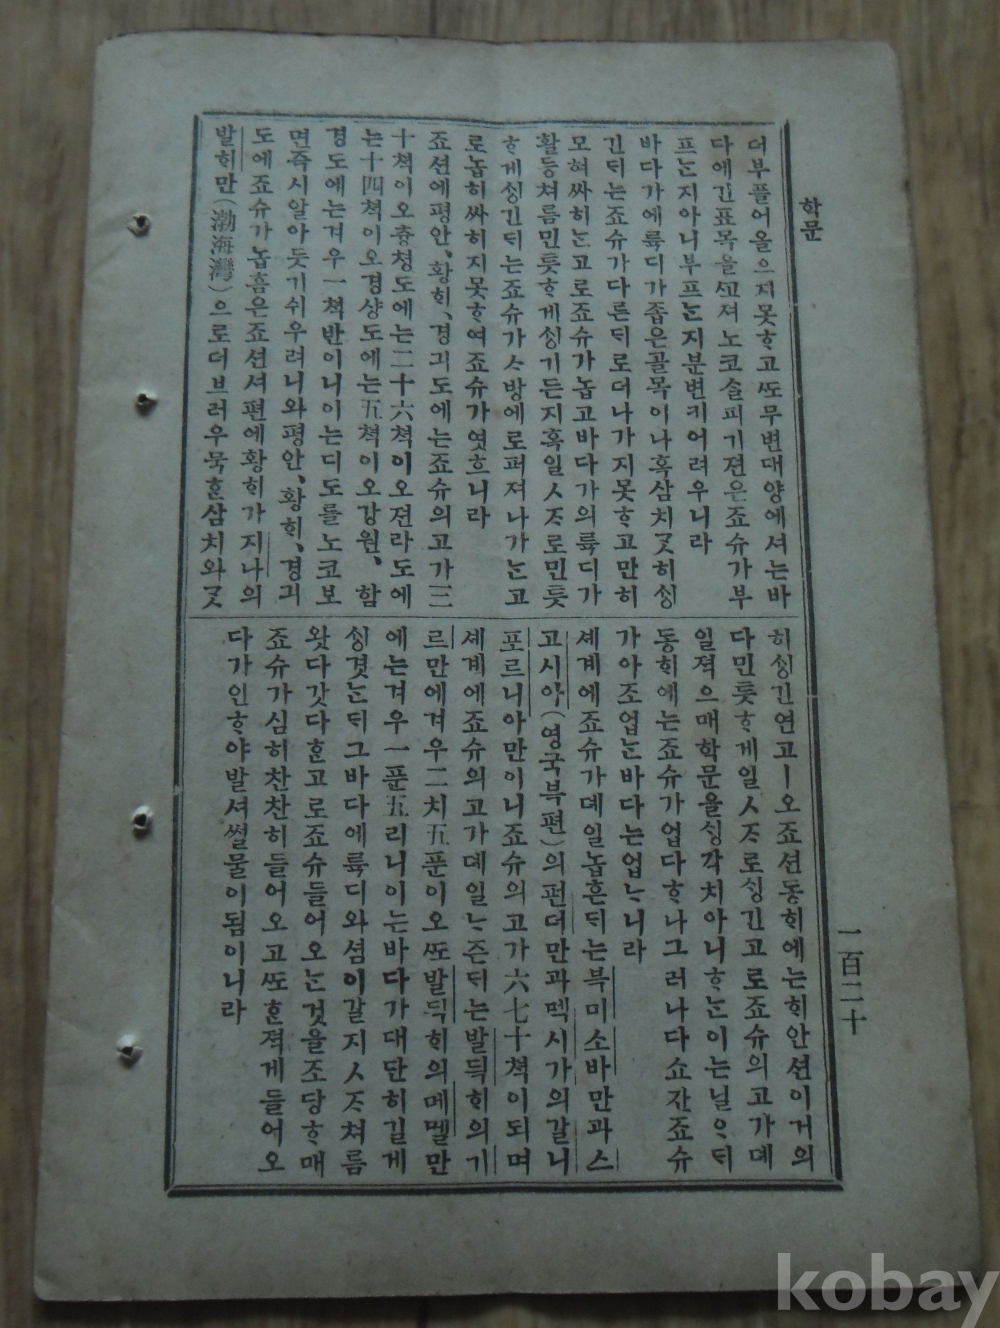 학문
더부플어올으지못ᄒᆞ고ᄯᅩ무변대양에셔는바
다에긴표목을ᄭᅩ져노코솔피기젼은죠슈가부
프ᄂᆞᆫ지아니부프ᄂᆞᆫ지분변키어려우니라
바다가에륙디가좁은골목이나혹삼치ᄀᆞᆺ히ᄉᆡᆼ
긴ᄃᆡ는죠슈가다른ᄃᆡ로더나가지못ᄒᆞ고만히
모혀싸히ᄂᆞᆫ고로죠슈가놉고바다가의륙디가
활등쳐름민틋ᄒᆞ게ᄉᆡᆼ기든지혹일ᄉᆞᄌᆞ로민틋
ᄒᆞ게ᄉᆡᆼ긴ᄃᆡ는죠슈가ᄉᆞ방에로펴져나가ᄂᆞᆫ고
로놉히싸히지못ᄒᆞ여죠슈가엿흐니라
죠션에평안、황ᄒᆡ、경긔도에는죠슈의고가三
十쳑이오츙쳥도에는二十六쳑이오젼라도에
는十四쳑이오경샹도에는五쳑이오강원、함
경도에는겨우一쳑반이니이는디도를노코보
면즉시알아듯기쉬우려니와평안、황ᄒᆡ、경긔
도에죠슈가놉흠은죠션셔편에황ᄒᆡ가지나의
발ᄒᆡ만(渤海灣)으로더브러우묵ᄒᆞᆫ삼치와ᄀᆞᆺ
히ᄉᆡᆼ긴연고ㅣ오죠션동ᄒᆡ에는ᄒᆡ안션이거의
다민틋ᄒᆞ게일ᄉᆞᄌᆞ로ᄉᆡᆼ긴고로죠슈의고가뎨
일젹으매학문을ᄉᆡᆼ각치아니ᄒᆞᄂᆞᆫ이는닐ᄋᆞᄃᆡ
동ᄒᆡ에는죠슈가업다ᄒᆞ나그러나다쇼간죠슈
가아조업ᄂᆞᆫ바다는업ᄂᆞ니라
셰계에죠슈가뎨일놉흔ᄃᆡ는북미소바만과스
고시아(영국북편)의펀더만과멕시가의갈니
포르니아만이니죠슈의고가六七十쳑이되며
셰계에죠슈의고가뎨일ᄂᆞ즌ᄃᆡ는발틱ᄒᆡ의기
르만에겨우二치五푼이오ᄯᅩ발틱ᄒᆡ의메멜만
에는겨우一푼五리니이는바다가대단히길게
ᄉᆡᆼ겻ᄂᆞᆫᄃᆡ그바다에륙디와셤이갈지ᄉᆞᄌᆞ쳐름
왓다갓다ᄒᆞᆫ고로죠슈들어오ᄂᆞᆫ것을조당ᄒᆞ매
죠슈가심히찬찬히들어오고ᄯᅩᄒᆞᆫ젹게들어오
다가인ᄒᆞ야발셔썰물이됨이니라
一百二十
kobay